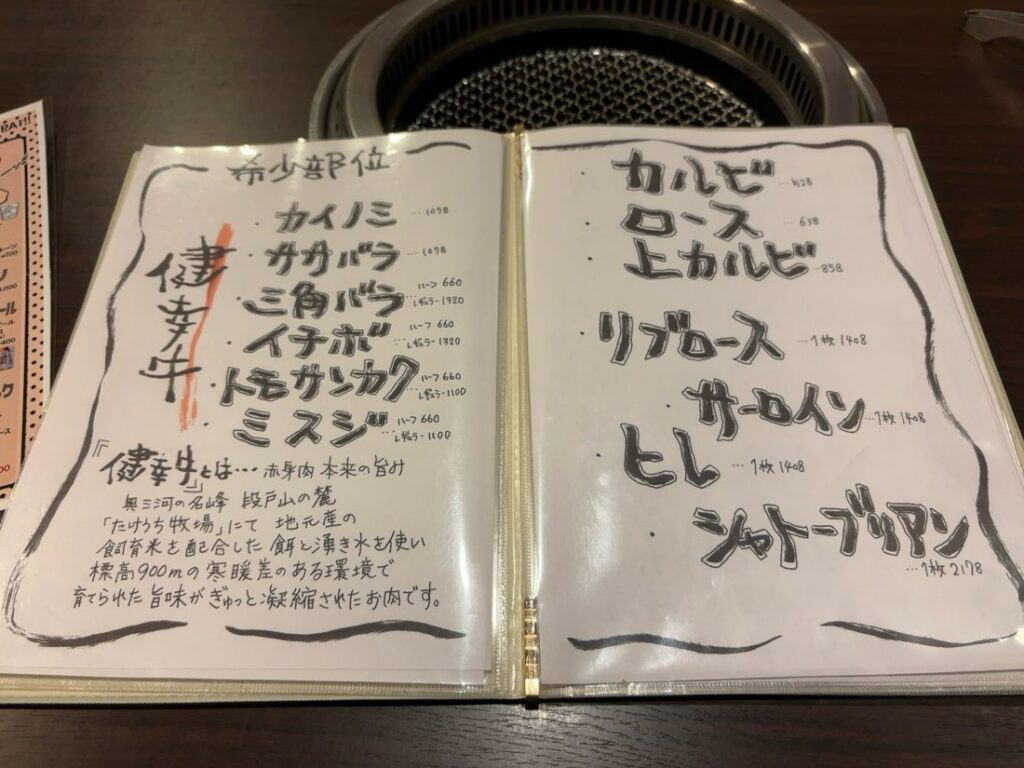 希少部位
健幸牛
・カイノミ …1098
・ササバラ …1098
・三角バラ ハーフ 660
…レギュラー1320
・イチボ ハーフ 660
…レギュラー1320
・トモサンカク ハーフ 660
…レギュラー1100
・ミスジ ハーフ 660
…レギュラー1100
『健幸牛』とは… 赤身肉本来の旨み
奥三河の名峰 段戸山の麓
「たけうち牧場」にて 地元産の
飼育米を配合した餌と湧き水を使い
標高900mの寒暖差のある環境で
育てられた旨味がぎゅっと凝縮されたお肉です。
・カルビ …528
・ロース …638
・上カルビ …858
・リブロース …1枚1408
・サーロイン …1枚1408
・ヒレ …1枚1408
・シャトーブリアン
…1枚2178